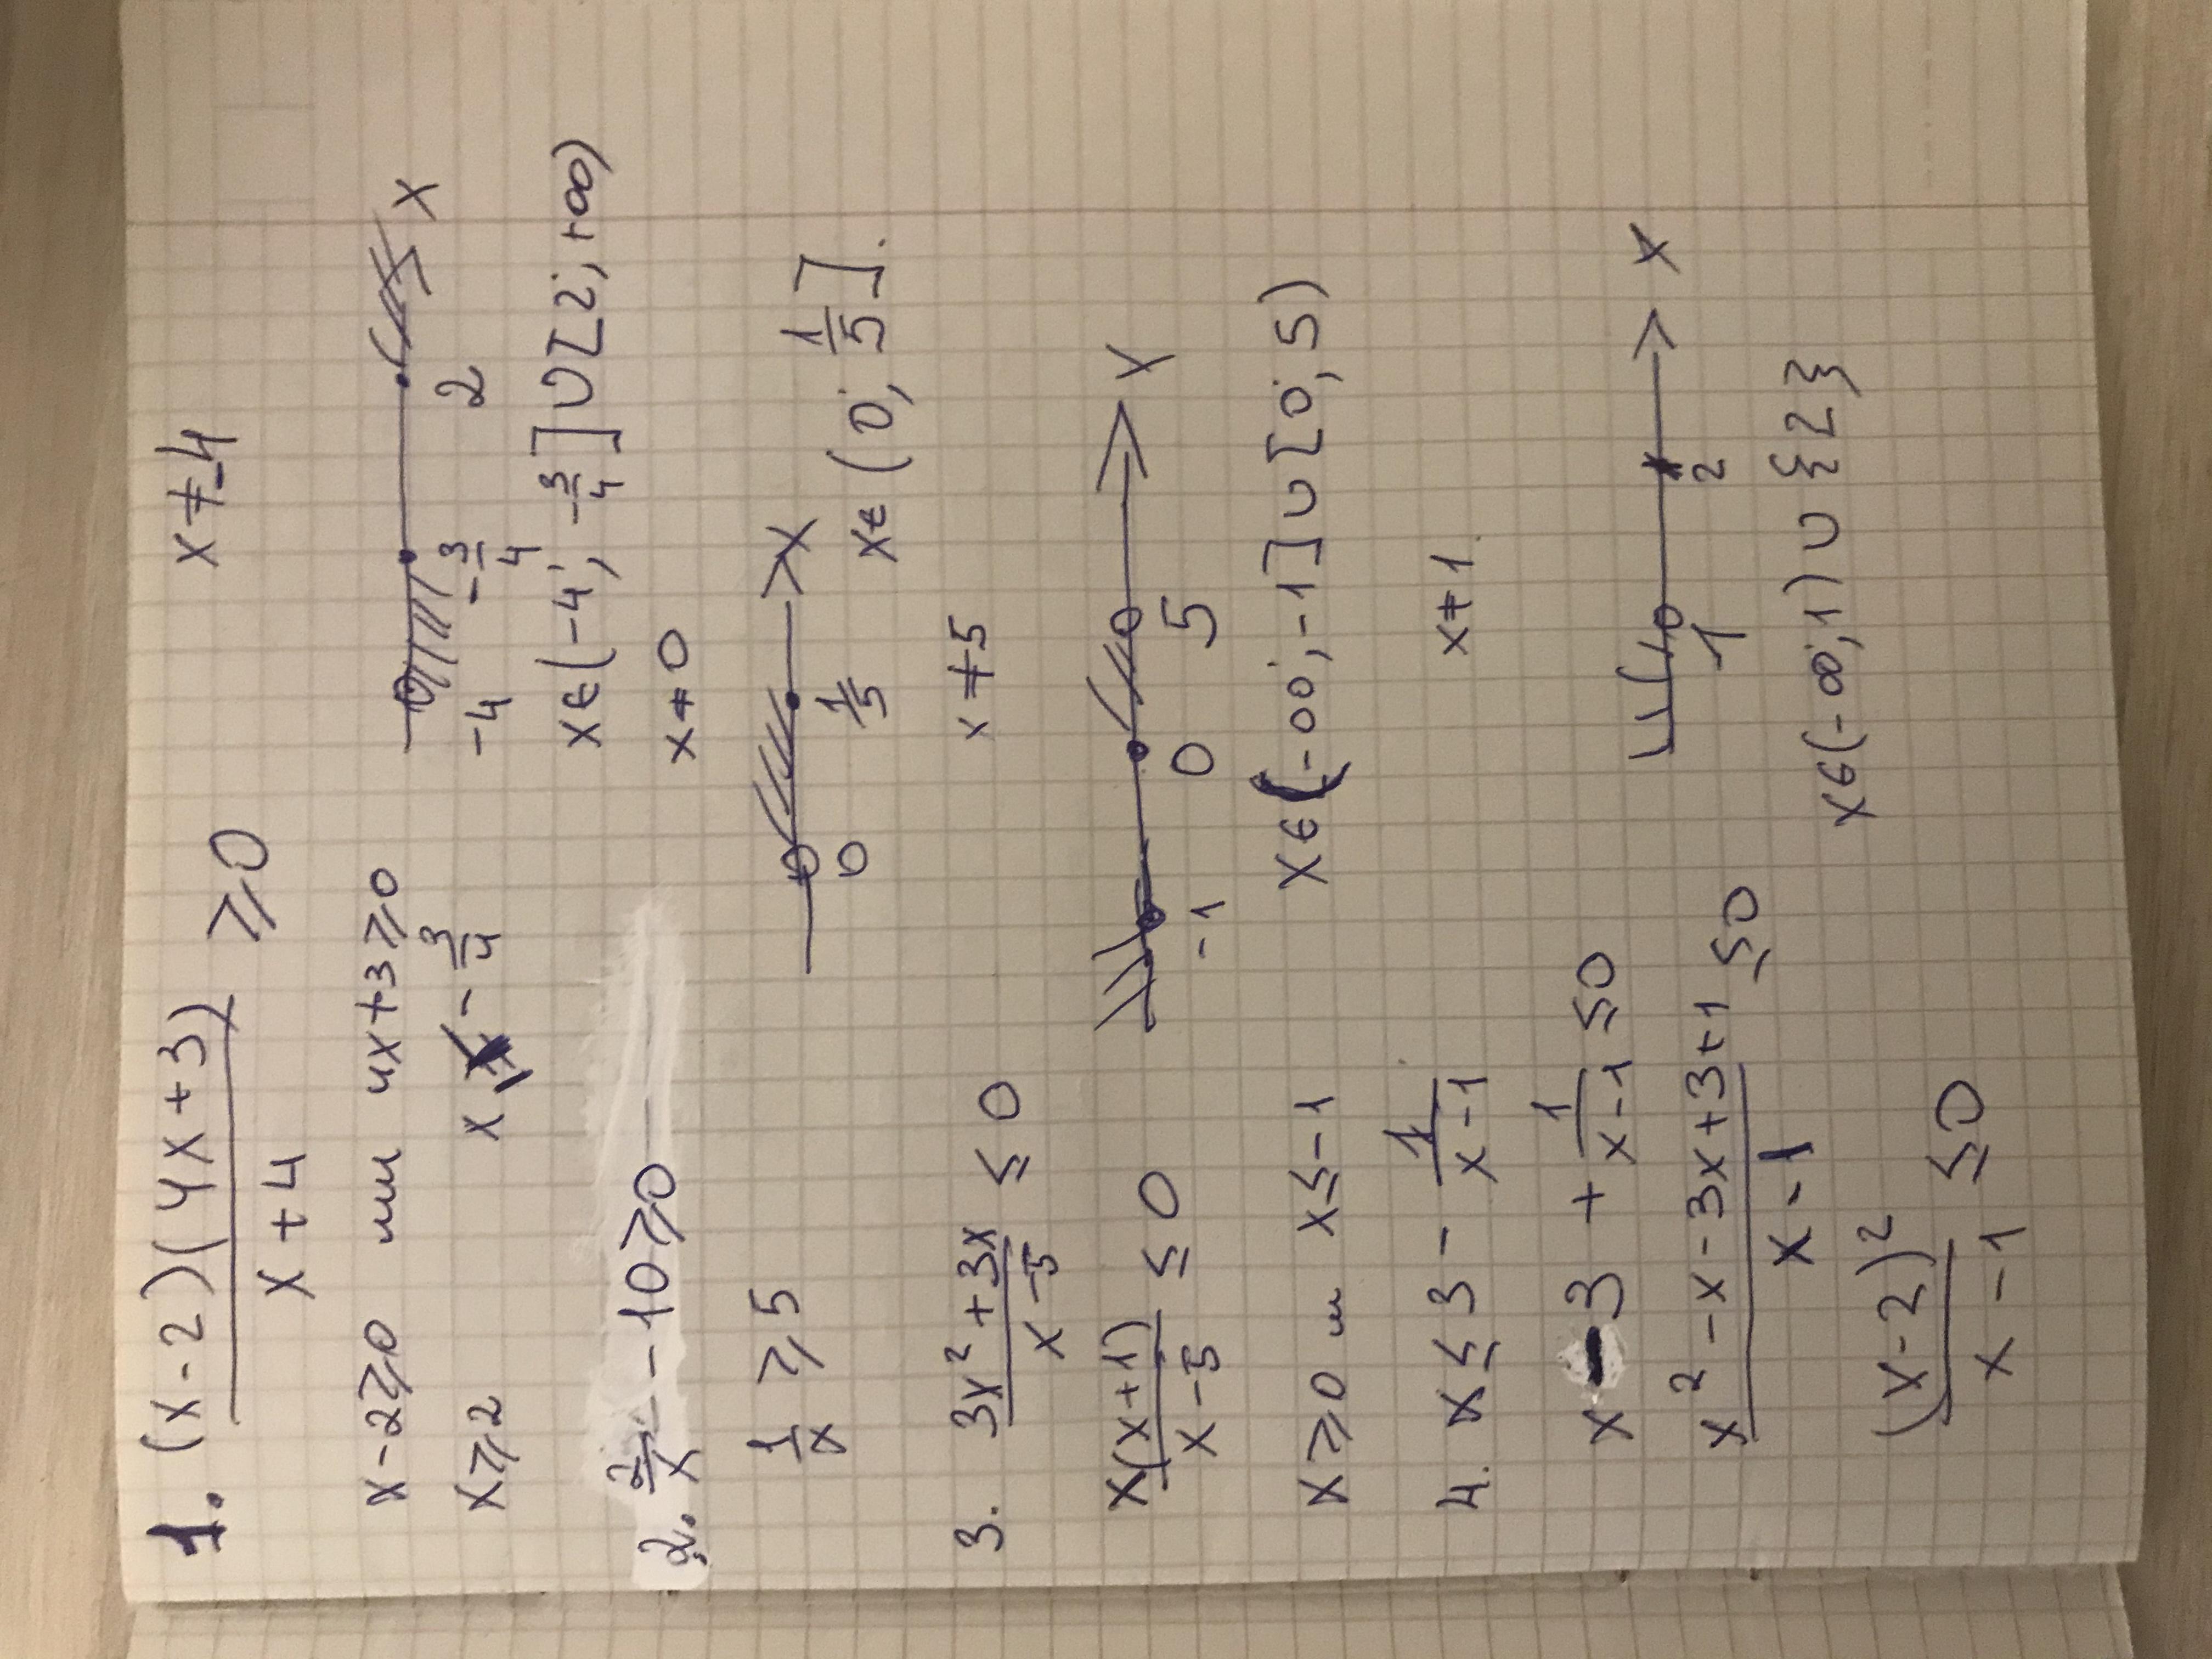 1. (x-2)(4x+3)/(x+4) ⩾0 x≠-4
x-2⩾0 или 4x+3⩾0
x⩾2 x -3/4
-4 -3/4 2 x
x∈(-4; -3/4]∪[2; +∞)
2. 2/x -10⩾0 x≠0
1/x ⩾5
0 1/5 x
x∈(0; 1/5].
3. (3x²+3x)/(x-5) ≤ 0 x≠5
x(x+1)/(x-5) ≤ 0
-1 0 5 x
x⩾0 и x≤-1 x∈(-∞; -1]∪[0; 5)
4. x≤3 - 1/(x-1) x≠1.
x-3 + 1/(x-1) ≤0
(x²-x-3x+3+1)/(x-1) ≤0
1 2 x
(x-2)²/(x-1) ≤0 x∈(-∞;1)∪{2}